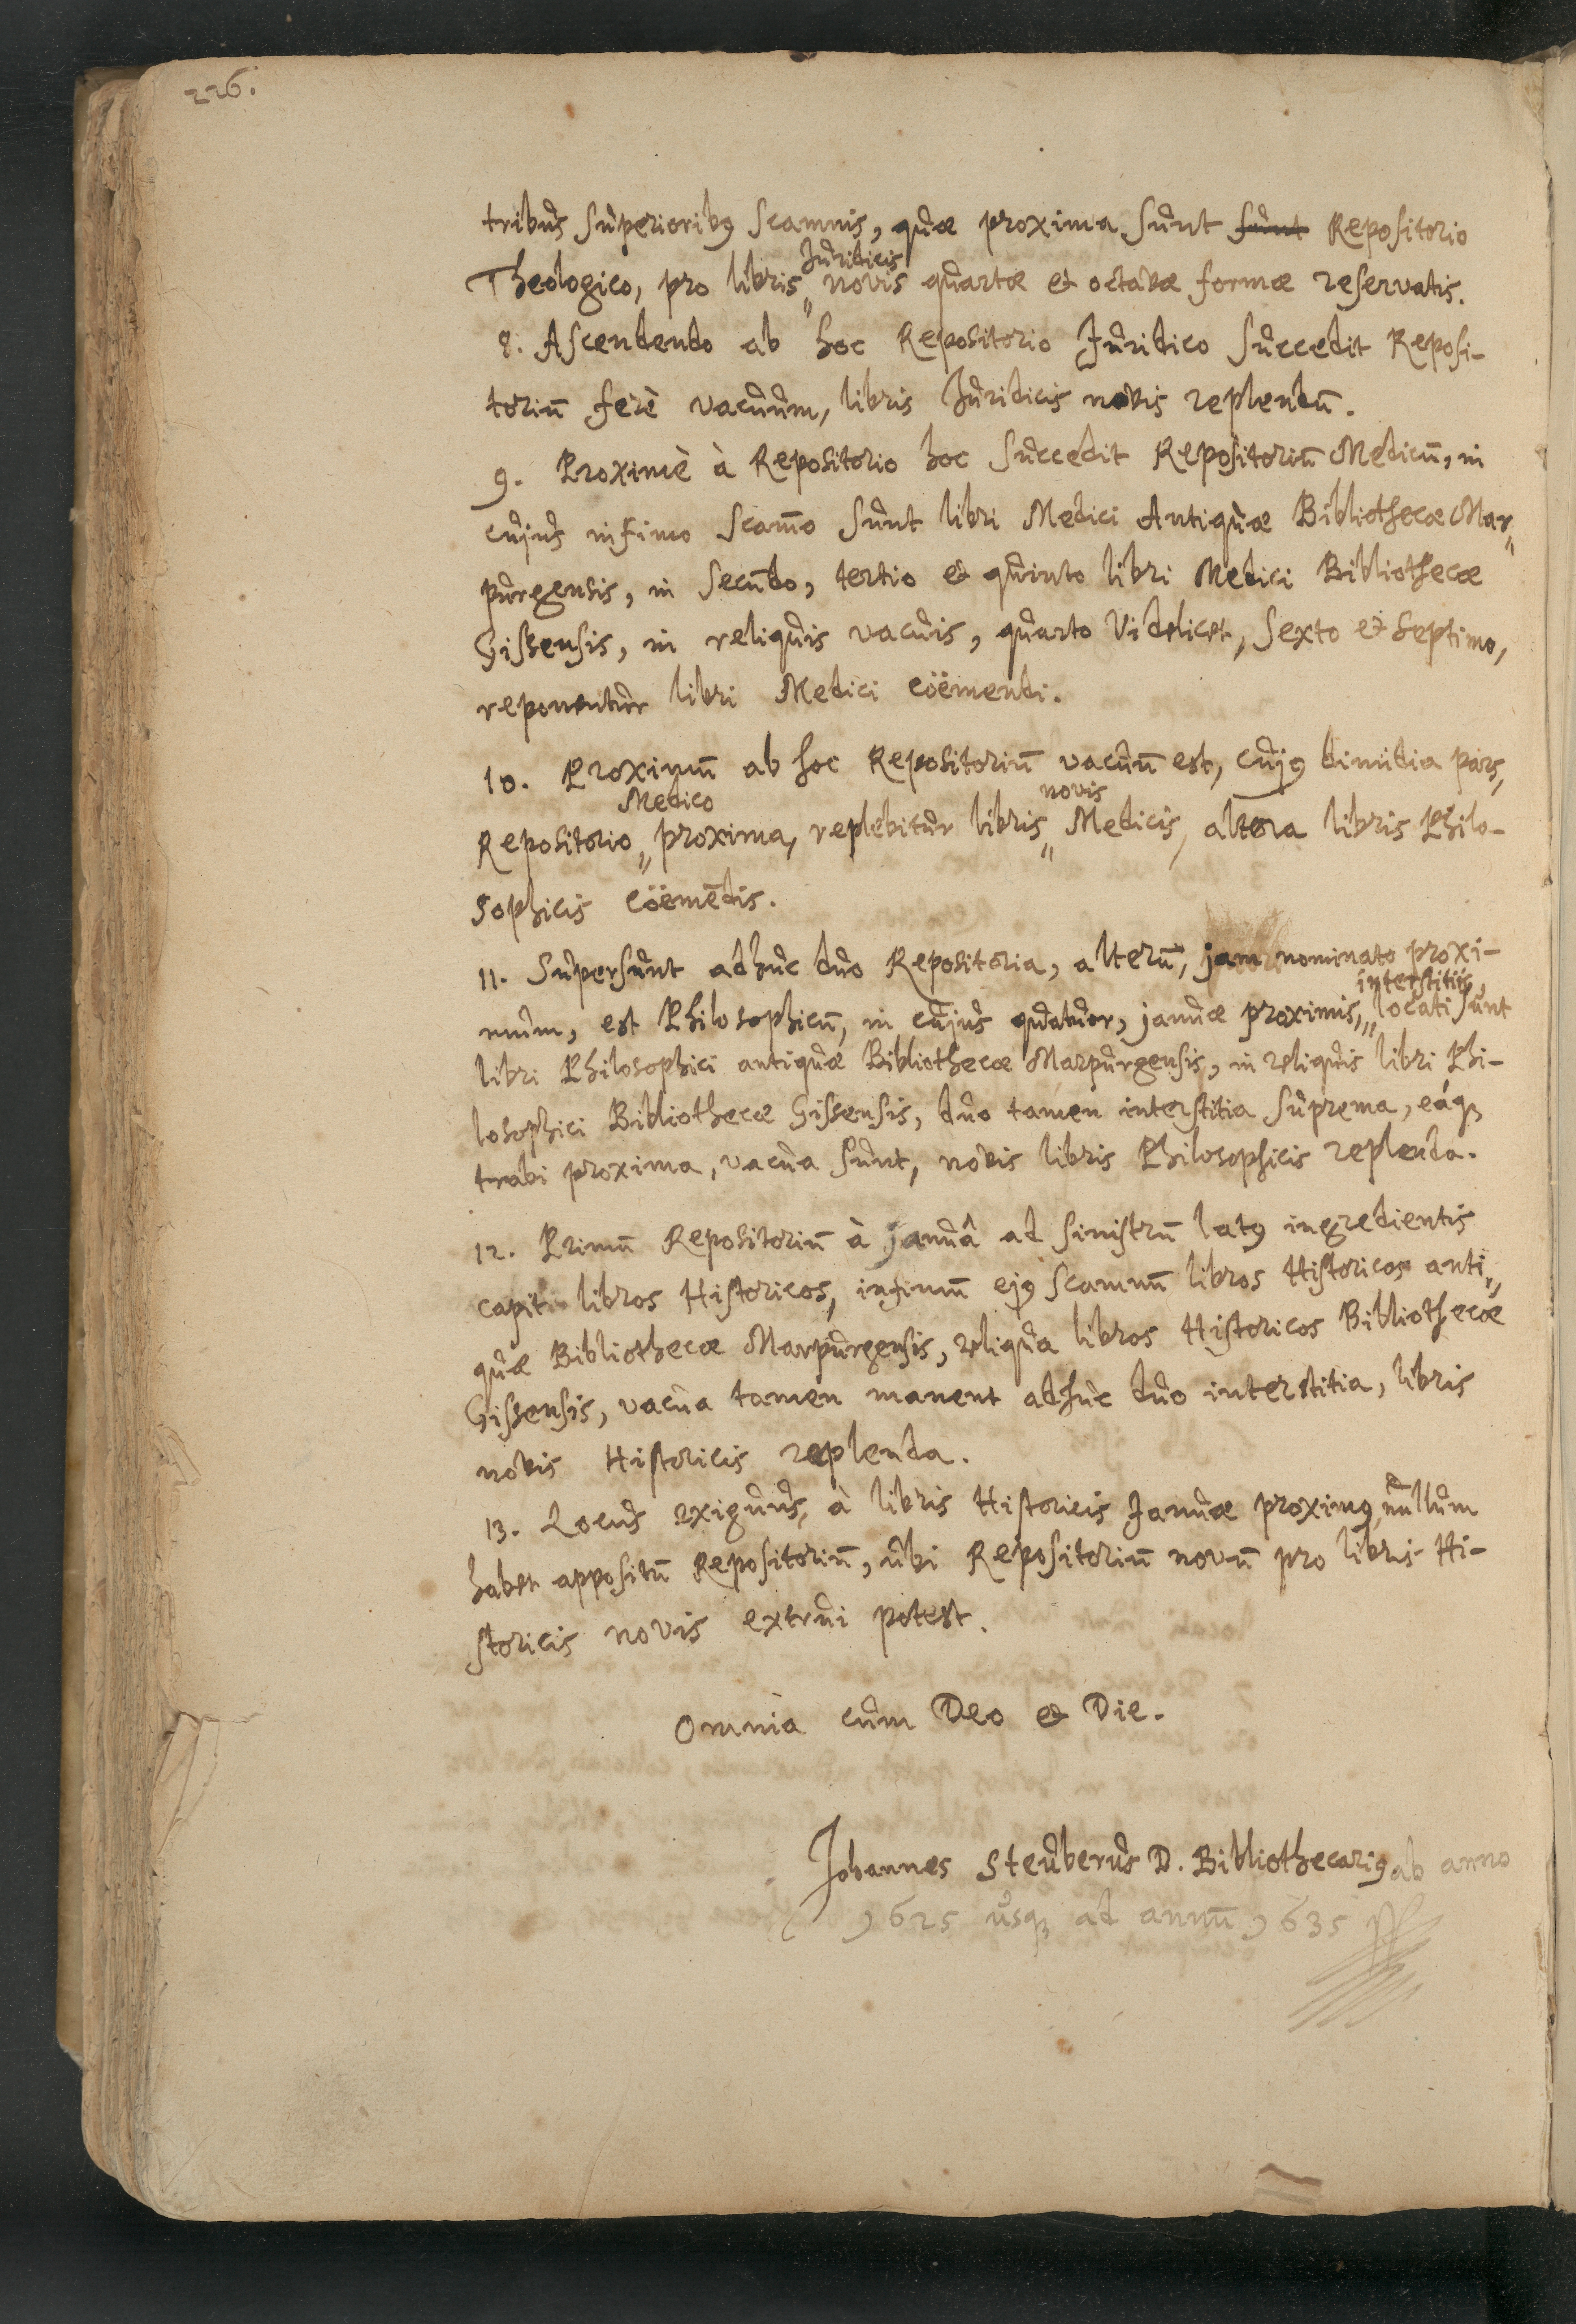 226.
tribus superioribꝰ scamnis, quæ proxima sunt sunt Repositorio
Juridicis
Theologico, pro libris„ novis quartæ et octavæ formæ reservatis.
8. Ascendendo ab hoc Repositorio Juridico succedit Reposi-
toriū ferè vacuum, libris Juridicis novis replendū.
9. Proximè à Repositorio hoc succedit Repositoriū Medicū, in
cujus infimo scam̄o sunt libri Medici Antiquæ Bibliothecæ Mar„
purgensis, in secundo, tertio et quinto libri Medici Bibliothecæ
Gissensis, in reliquis vacuis, quarto videlicet, sexto et septimo,
reponentur libri Medici coëmendi.
10. Proximū ab hoc Repositoriū vacuū est, cujꝰ dimidia pars,
Medico novis
Repositorio„ proxima, replebitur libris„ Medicis, altera libris Philo-
sophicis coëmēdis.
11. Supersunt adhuc duo Repositoria, alterū, jam nominato proxi-
interstitiis,
mum, est Philosophicū, in cujus quatuor, januæ proximis,„ locati sunt
libri Philosophici antiquæ Bibliothecæ Marpurgensis, in reliquis libri Phi-
losophici Bibliothecæ Gissensis, duo tamen interstitia suprema, eáqꝫ
trabi proxima, vacua sunt, novis libris Philosophicis replenda.
12. Primū Repositoriū à januâ ad sinistrū latꝰ ingredientis
capit libros Historicos, infimū ejꝰ scamnū libros Historicos anti„
quæ Bibliothecæ Marpurgensis, reliqua libros Historicos Bibliothecæ
Gissensis, vacua tamen manent adhuc duo interstitia, libris
novis Historicis replenda.
13. Locus exiguus, à libris Historicis Januæ proximꝰ, nullum
habet appositū Repositoriū, ubi Repositoriū novū pro libris Hi-
storicis novis extrui potest.
Omnia cum Deo et Die.
Johannes Steuberus D. Bibliothecariꝰ ab anno
1625 usqꝫ ad annū 1635